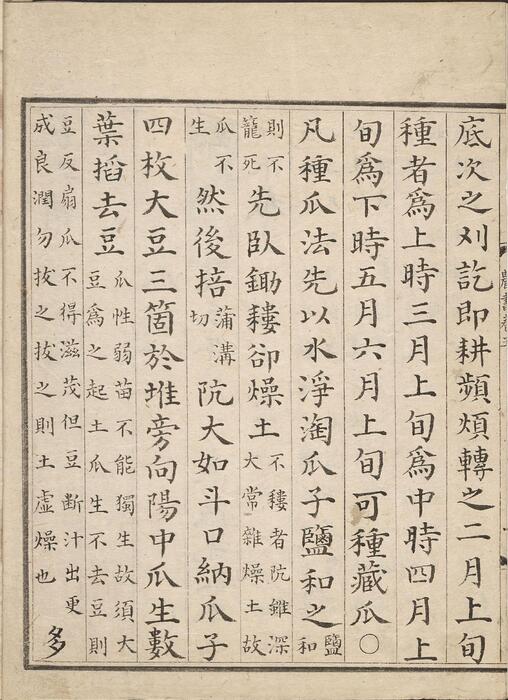 底次之刈訖即耕頻煩轉之二月上旬
種者爲上時三月上旬爲中時四月上
旬爲下時五月六月上旬可種藏瓜○
凡種瓜法先以水淨淘瓜子鹽和之鹽和
則不籠死先臥鋤耬卻燥土不耬者阬雖深大常雜燥土故
瓜不生然後掊蒲溝切阬大如斗口納瓜子
四枚大豆三箇於堆旁向陽中瓜生數
葉搯去豆瓜性弱苗不能獨生故須大豆爲之起土瓜生不去豆則
豆反扇瓜不得滋茂但豆斷汁出更成良潤勿拔之拔之則土虛燥也多